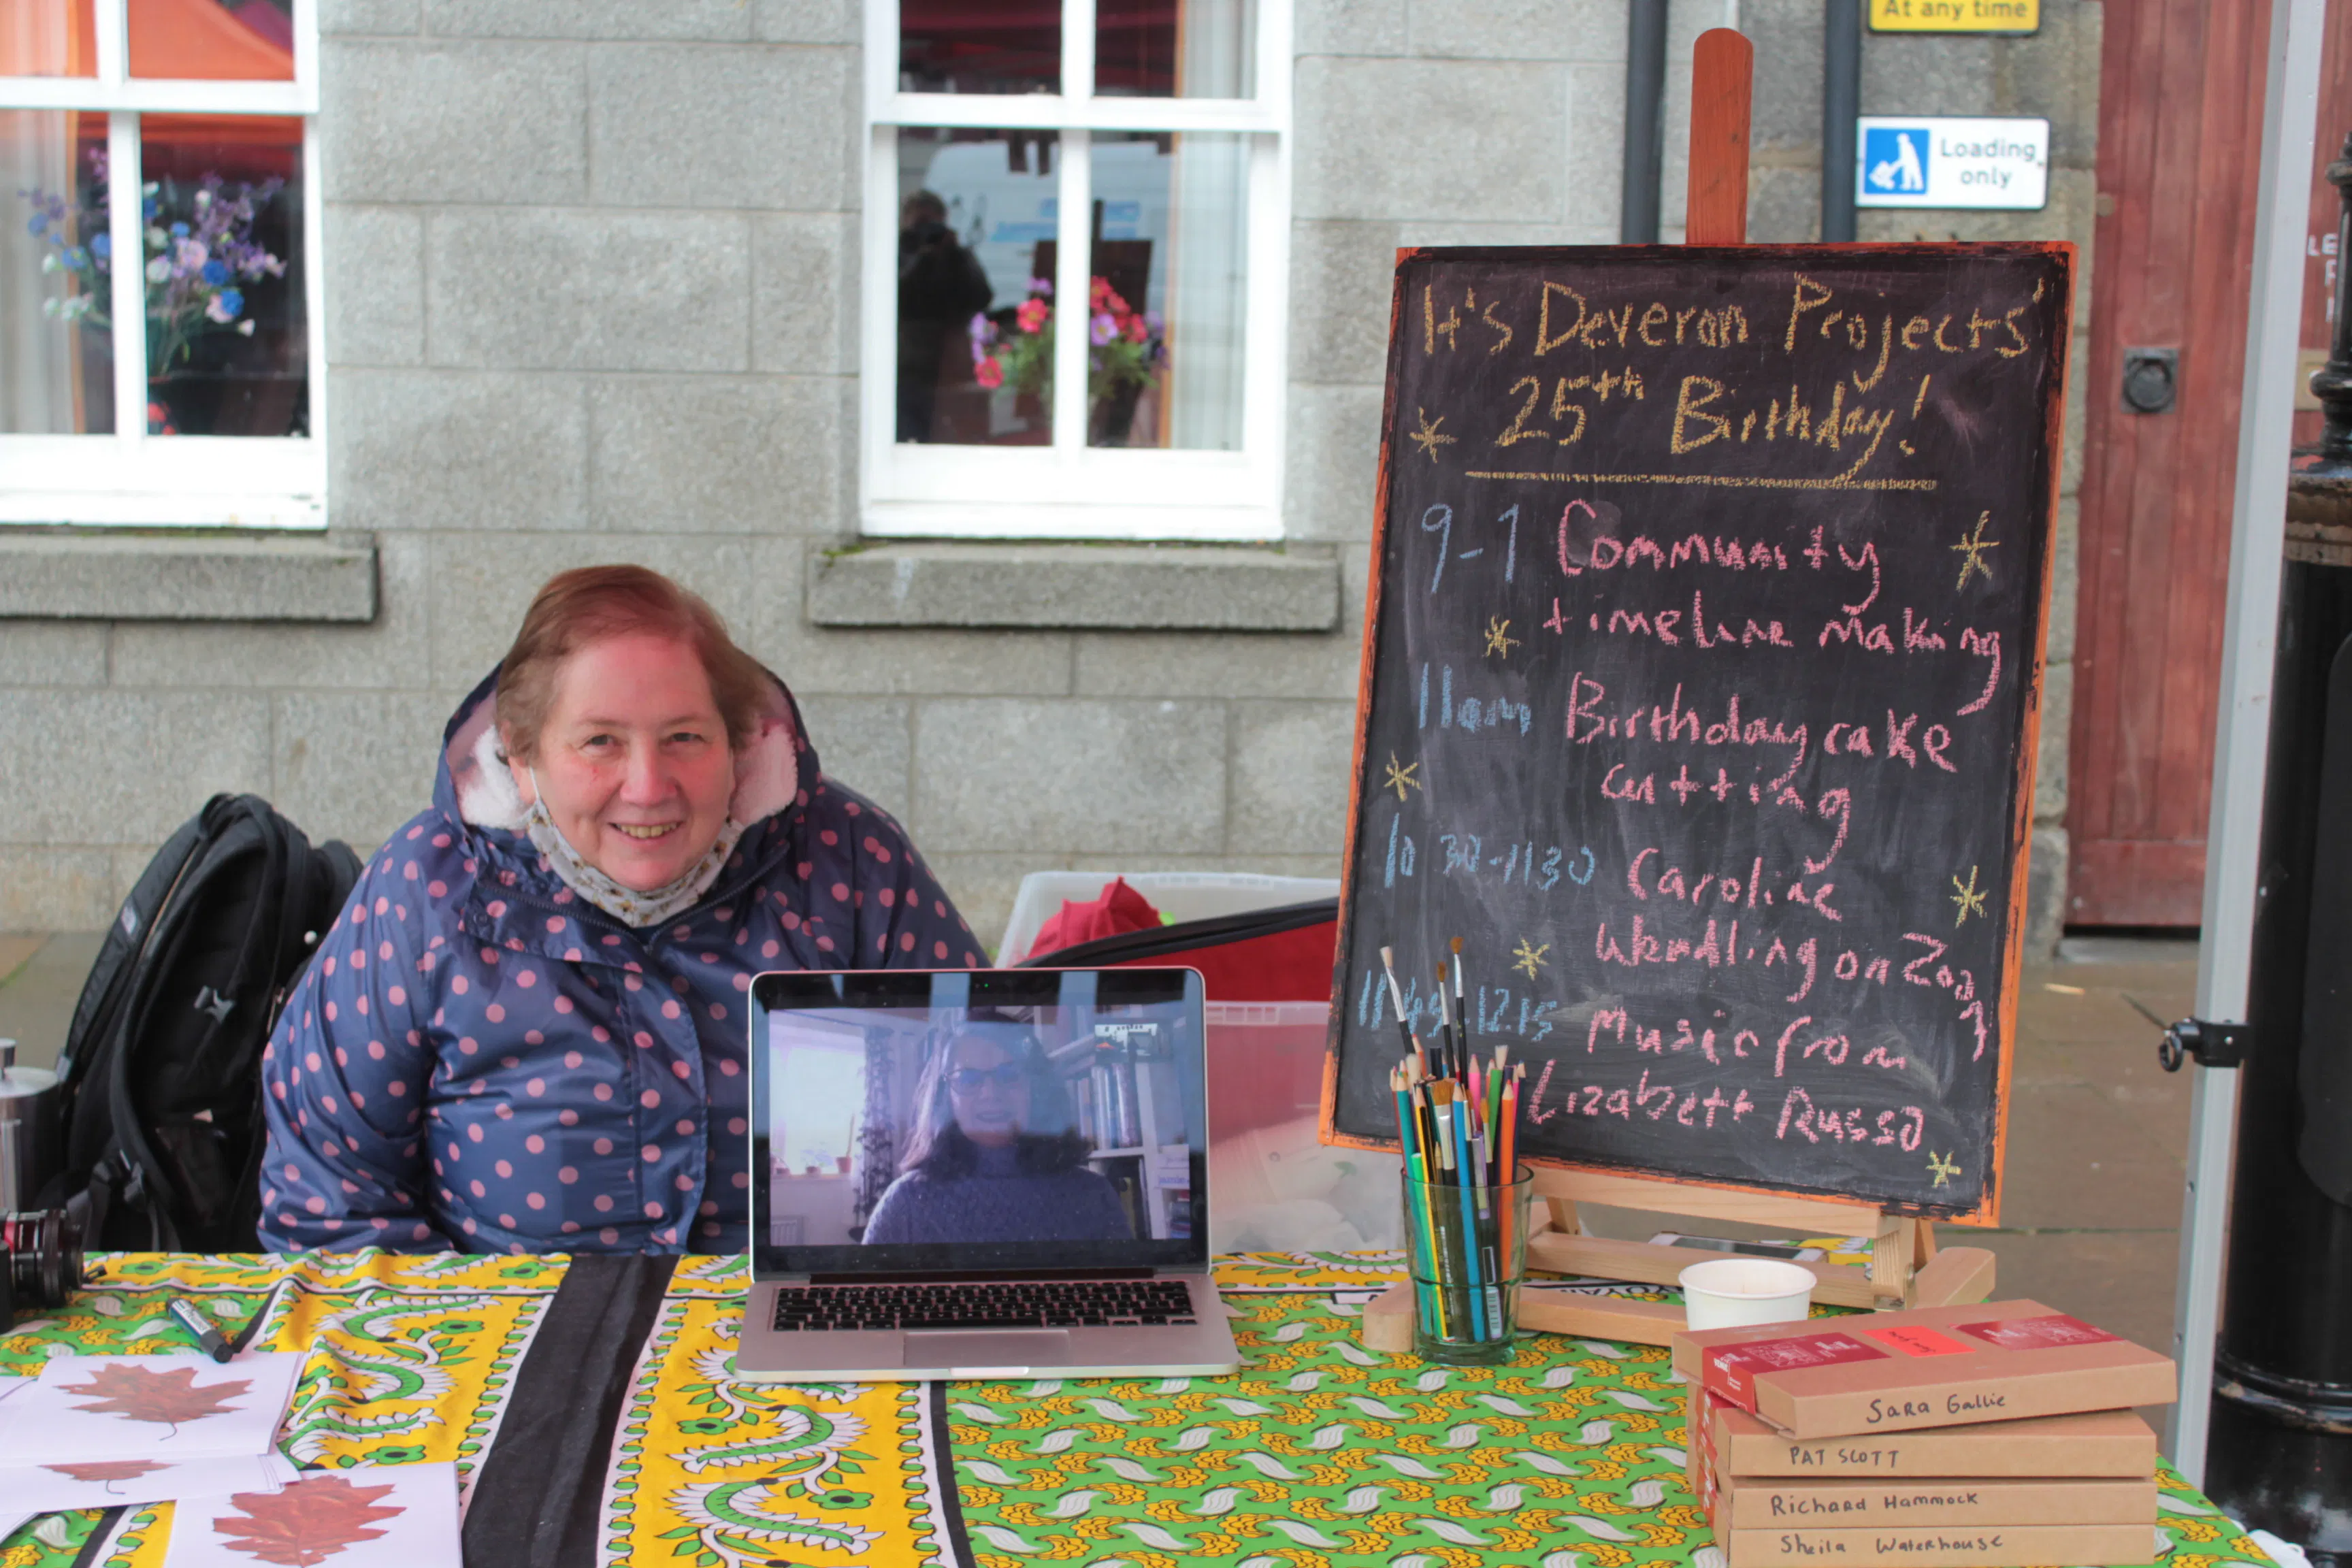 At any time
Loading
only
It's Deveron Projects'
25th Birthday!
9-1 Community
timeline making
11am Birthday cake
cutting
10 30-1130 Caroline
Wendling on Zoom
1145-12.15 Music from
Lizabett Russo
Sara Gallie
PAT SCOTT
Richard Hammock
Sheila Waterhouse